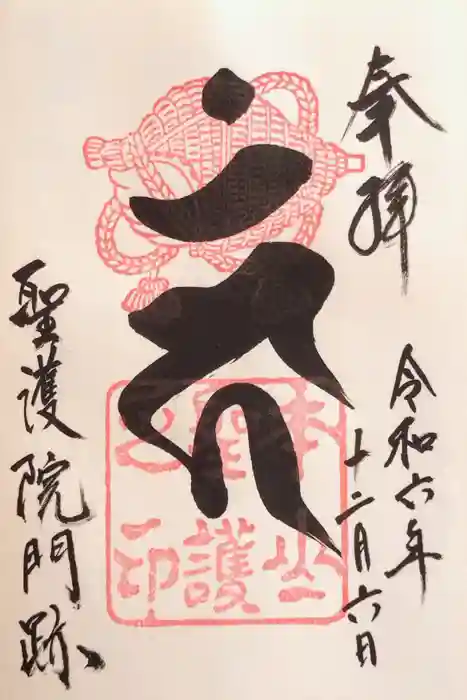 奉拝
令和六年
十二月六日
聖護院門跡
本山
聖護
之印